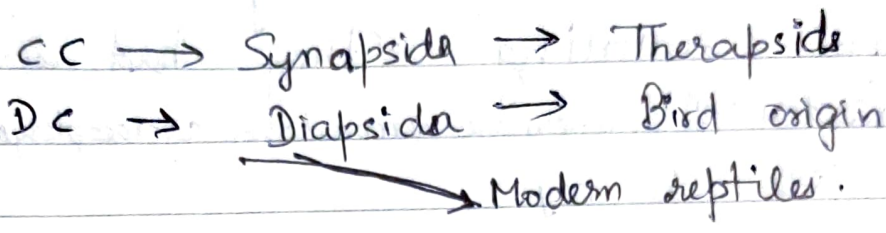 CC → Synapsida → Therapsids
DC → Diapsida → Bird origin
→ Modern reptiles.